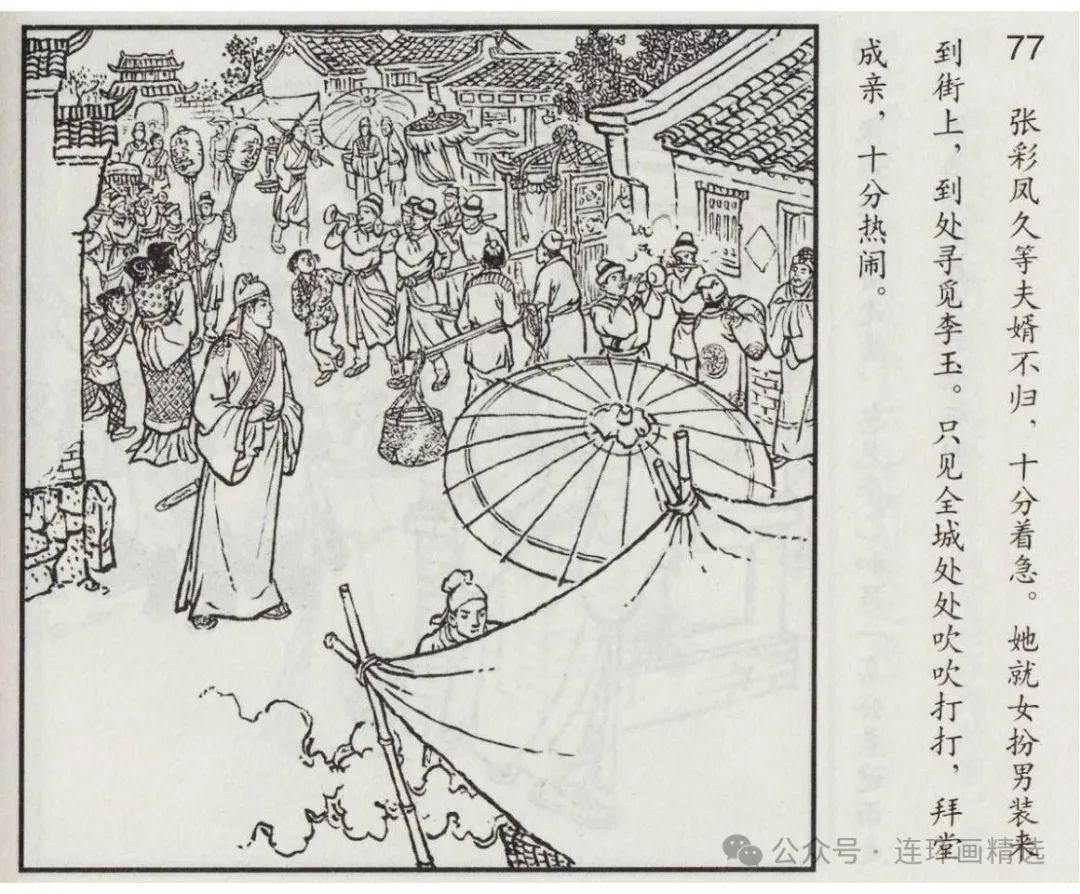 77
张彩凤久等夫婿不归，十分着急。她就女扮男装来
到街上，到处寻觅李玉。只见全城处处吹吹打打，拜堂
成亲，十分热闹。
公众号·连环画精选